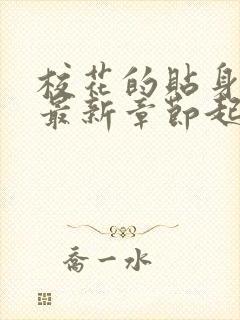 校花的貼身
最新章節起
喬一水